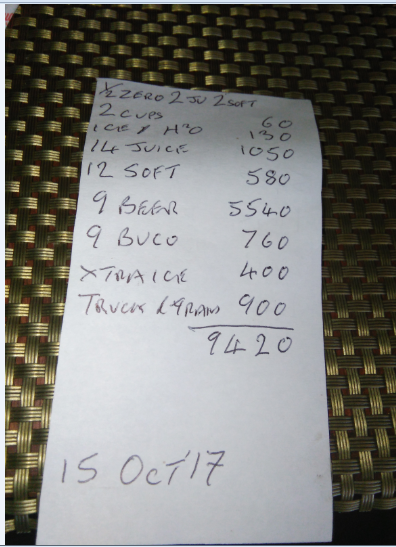 ½ ZERO 2 JU 2 SOFT
2 CUPS 60
ICE & H²O 130
14 JUICE 1050
12 SOFT 580
9 BEER 5540
9 BUCO 760
XTRA ICE 400
TRUCK 900
9420
15 OCT '17